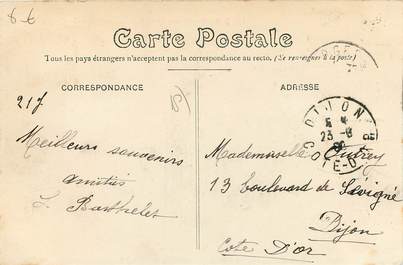 8-6
Carte Postale
Tous les pays étrangers n'acceptent pas la correspondance au recto. (Se renseigner à la poste)
CORRESPONDANCE
ADRESSE
217
Meilleurs souvenirs
amitiés
L. Barthelet
DIJON
23-8
COTE-D'OR
Mademoiselle Outrey
13 boulevard de Sévigné
Dijon
Cote D'Or